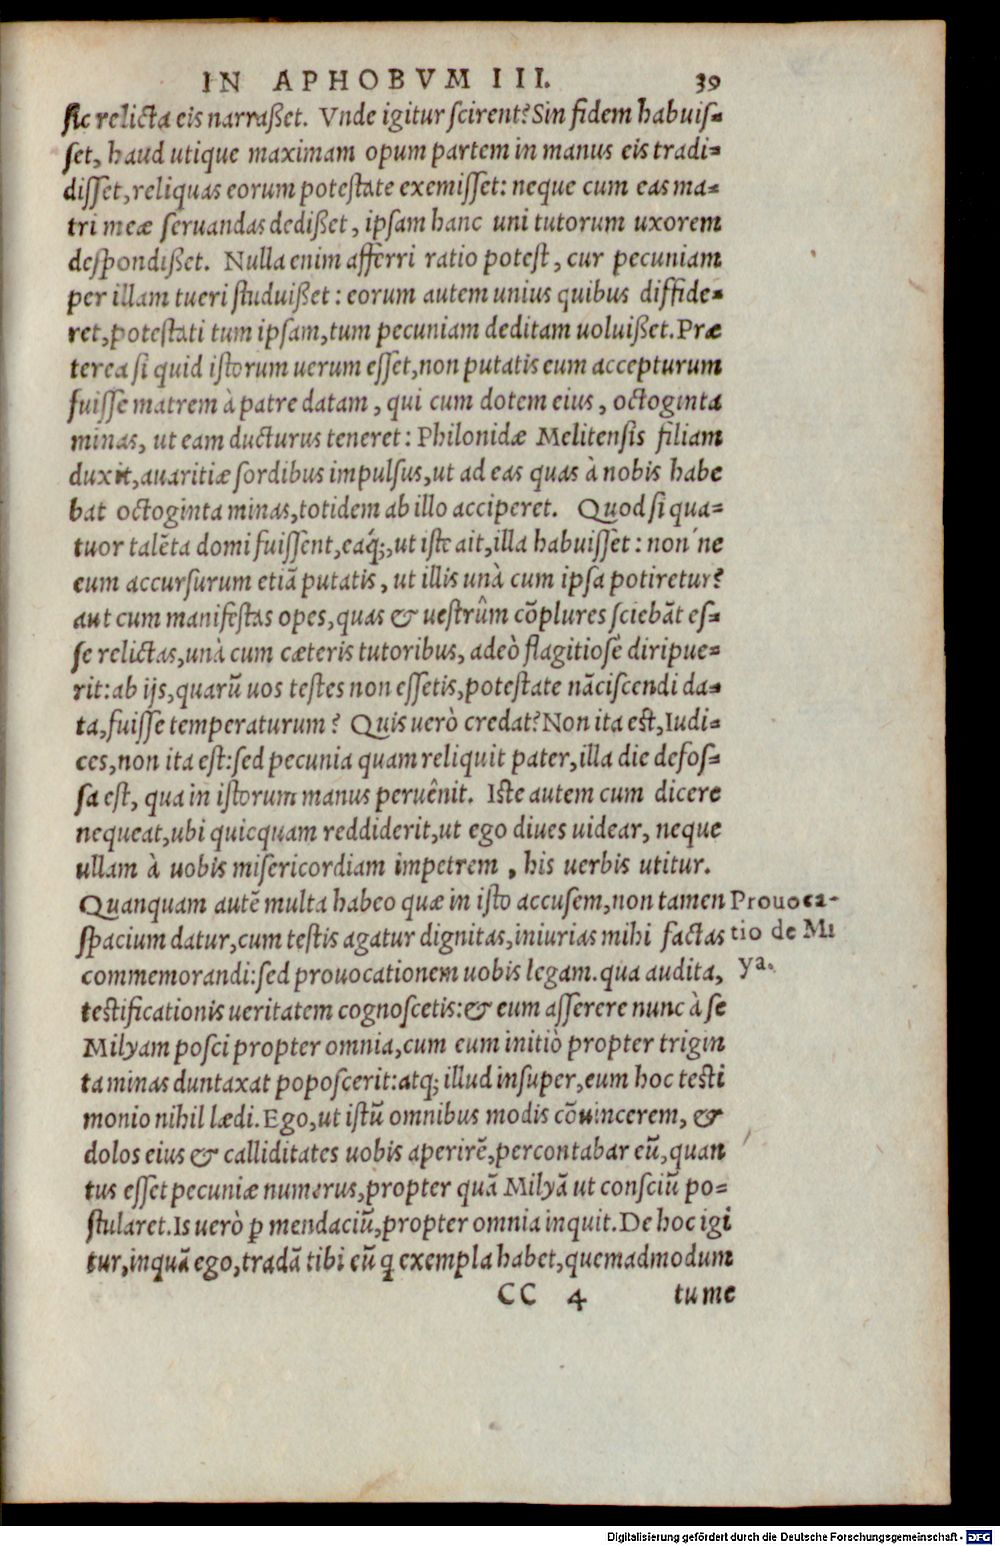 IN APHOBVM III. 39
sic relicta eis narraßet. Vnde igitur scirent? Sin fidem habuis-
set, haud utique maximam opum partem in manus eis tradi-
disset, reliquas eorum potestate exemisset: neque cum eas ma-
tri meæ seruandas dedißet, ipsam hanc uni tutorum uxorem
despondißet. Nulla enim afferri ratio potest, cur pecuniam
per illam tueri studuißet: eorum autem unius quibus diffide-
ret, potestati tum ipsam, tum pecuniam deditam uoluißet. Præ
terea si quid istorum uerum esset, non putatis eum accepturum
fuisse matrem à patre datam, qui cum dotem eius, octoginta
minas, ut eam ducturus teneret: Philonidæ Melitensis filiam
duxit, auaritiæ sordibus impulsus, ut ad eas quas à nobis habe
bat octoginta minas, totidem ab illo acciperet. Quod si qua-
tuor talẽta domi fuissent, eaq́;, ut iste ait, illa habuisset: non ne
eum accursurum etiã putatis, ut illis unà cum ipsa potiretur?
aut cum manifestas opes, quas & uestrûm cõplures sciebãt es-
se relictas, unà cum cæteris tutoribus, adeò flagitiosè diripue-
rit: ab ijs, quarũ uos testes non essetis, potestate nãciscendi da-
ta, fuisse temperaturum? Quis uerò credat? Non ita est, Iudi-
ces, non ita est: sed pecunia quam reliquit pater, illa die defos-
sa est, qua in istorum manus peruênit. Iste autem cum dicere
nequeat, ubi quicquam reddiderit, ut ego diues uidear, neque
ullam à uobis misericordiam impetrem, his uerbis utitur.
Quanquam autẽ multa habeo quæ in isto accusem, non tamen
spacium datur, cum testis agatur dignitas, iniurias mihi factas
commemorandi: sed prouocationem uobis legam. qua audita,
testificationis ueritatem cognoscetis: & eum asserere nunc à se
Milyam posci propter omnia, cum eum initiò propter trigin
ta minas duntaxat poposcerit: atq; illud insuper, eum hoc testi
monio nihil lædi. Ego, ut istũ omnibus modis cõuincerem, &
dolos eius & calliditates uobis aperirẽ, percontabar eũ, quan
tus esset pecuniæ numerus, propter quã Milyã ut consciũ po-
stularet. Is uerò ꝑ mendaciũ, propter omnia inquit. De hoc igi
tur, inquã ego, tradã tibi eũ q̃ exempla habet, quemadmodum
CC 4 tu me
Prouoca-
tio de Mi
ya.
Digitalisierung gefördert durch die Deutsche Forschungsgemeinschaft - DFG